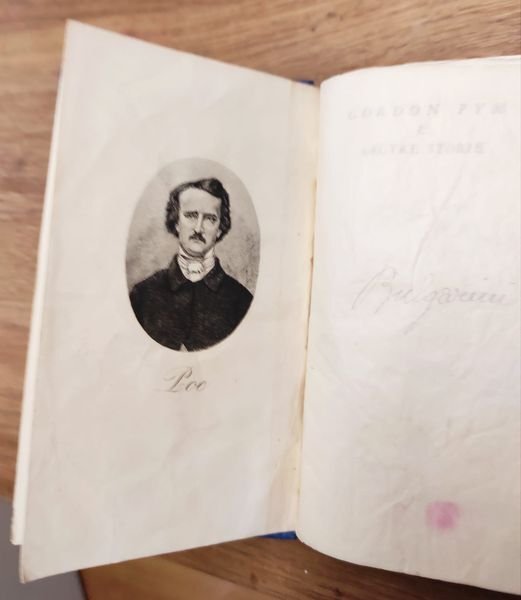 Poe
GORDON PYM
E
ALTRE STORIE
Bulgarini